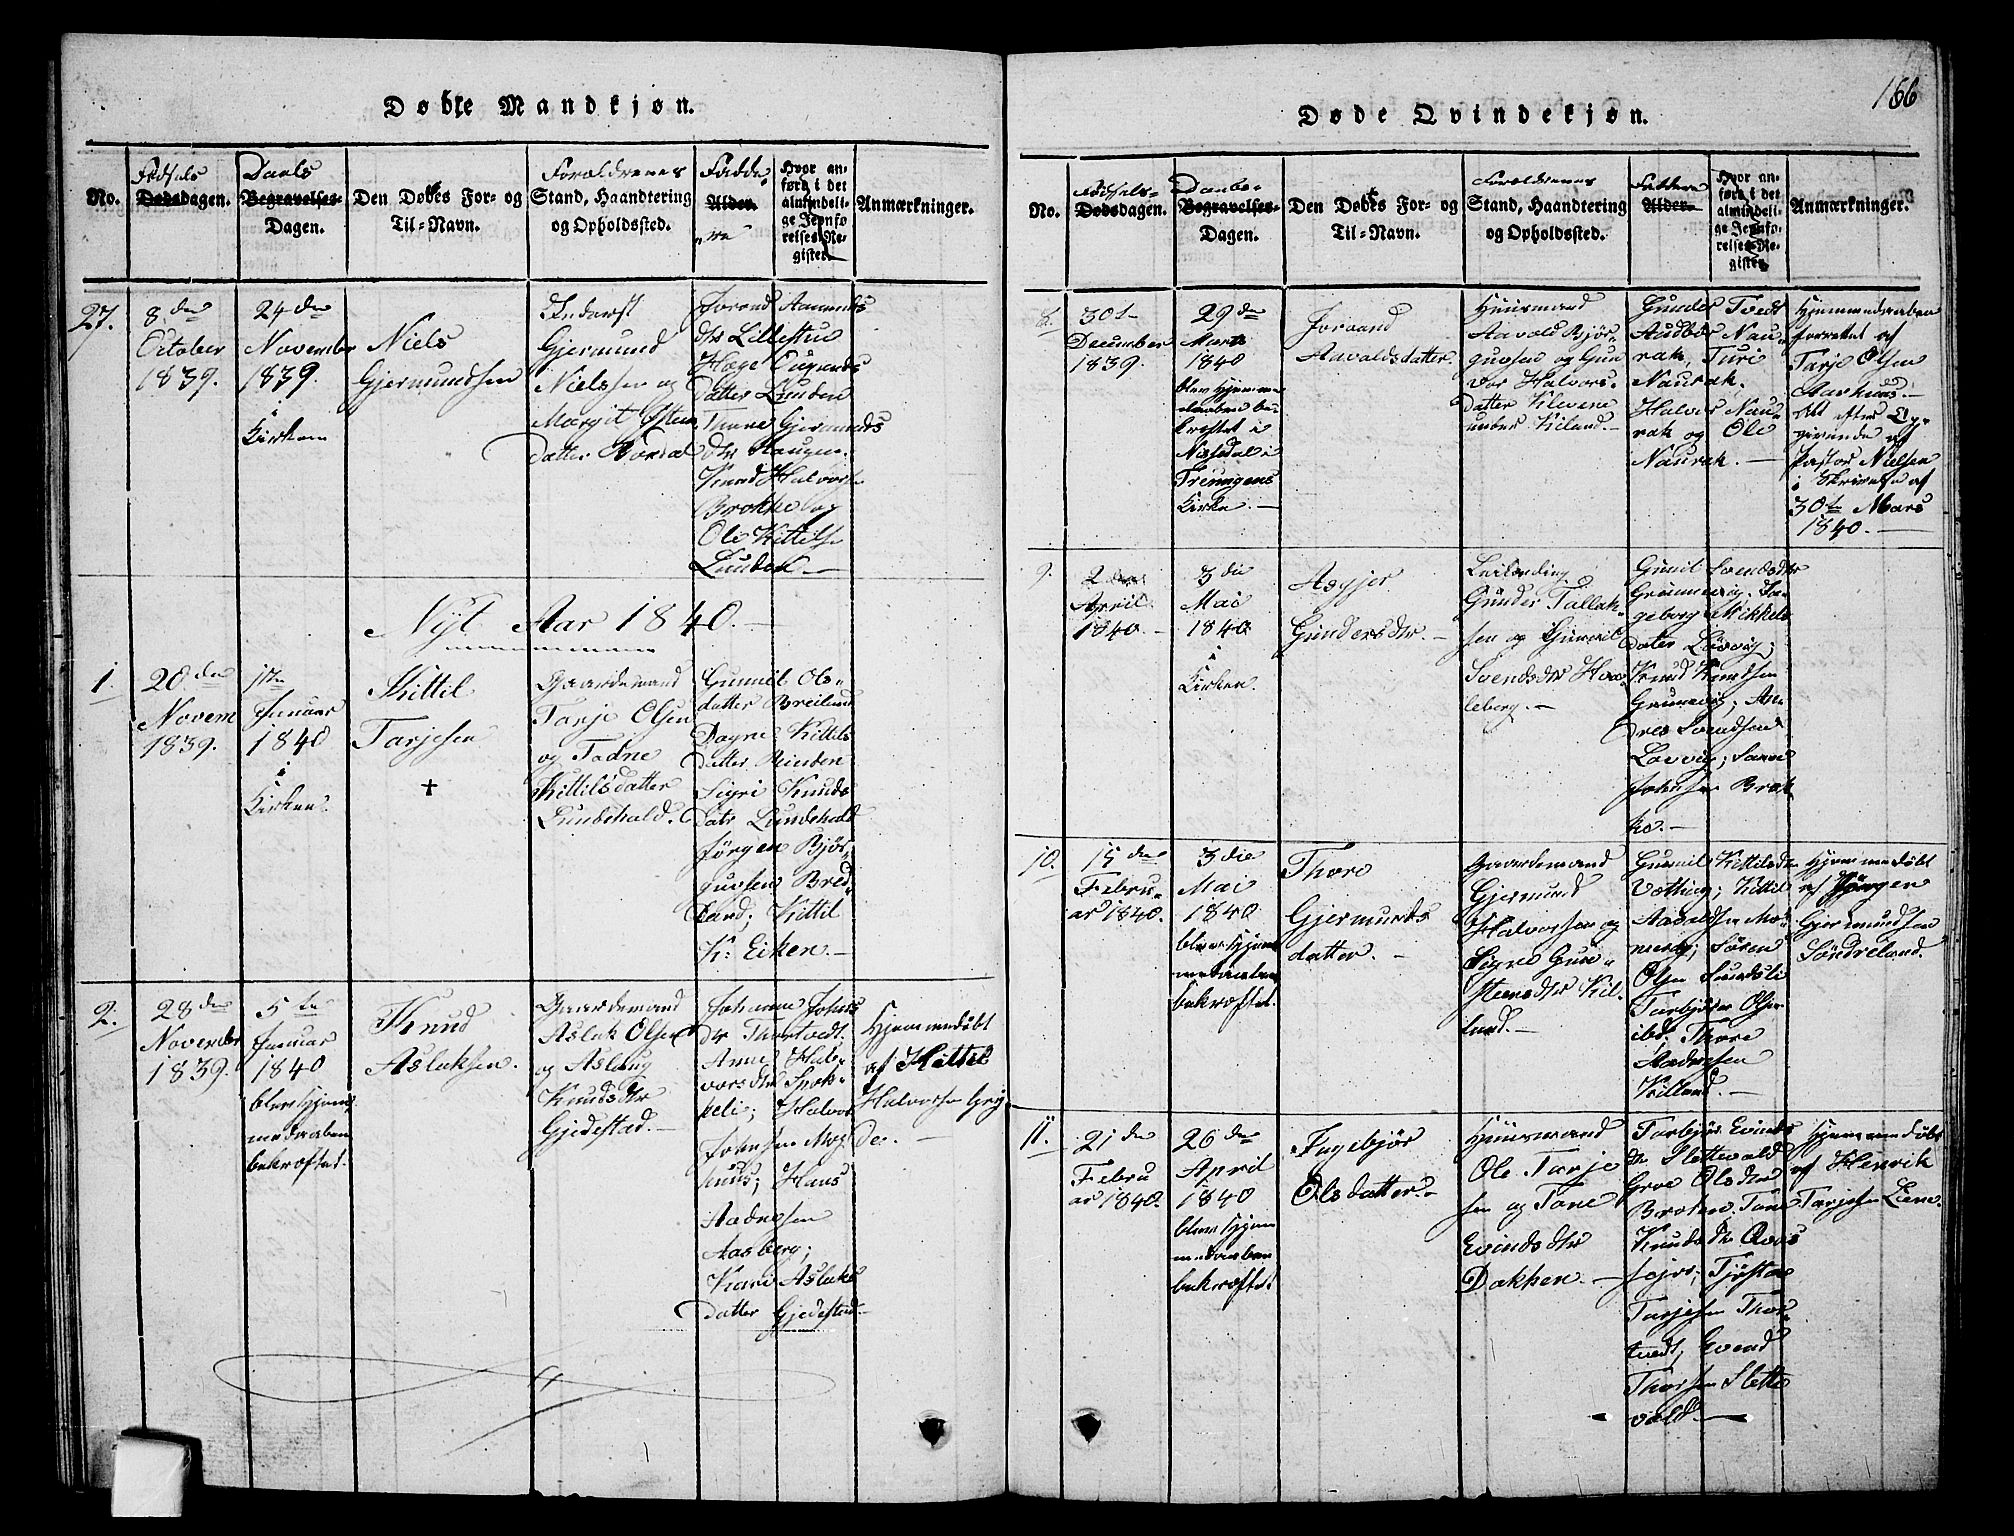 Døbte Mandkjøn.
No.
Fødsels
Dødsdagen.
Daabs
Begravelses-
Dagen.
Den Døbtes For- og
Til-Navn.
Forældrenes
Stand, Haandtering
og Opholdssted.
Fadde
Alder.
re
Hvor an-
ført i det
almindeli-
ge Jevnfø-
relses Re-
gister.
Anmærkninger.
27.
8. den
October
1839.
24 den
November
1839.
i
Kirken
Niels
Gjermundsen
Inderst
Gjermund
Nielssen og
Margit Osten
datter
Jorand Aamunds
dtr Lillestun
Hæge
datter Lunden
Thone Gjermunds
dtr Haugen.
Knud Halvors
Brokke og
Ole Kittils
Lunden.—
Nyt Aar 1840.—
1.
20 den
Novem
1839.
1te
Januar
1840
i
Kirken.
Kittil
Tarjesen
+
Gaardemand
Tarje Olsen
og Tadne
Kittilsdatter
Lundehald.
Gunnil Ols-
datter Breiland
Dagne Kittils
datter Rinden
Sigri Knuds
datr Lundehald
Jørgen Bjør-
guvsen Bred-
land; Kittil
K: Eiken.—
2.
28 den
November
1839.
5 te
Januar
1840
blev Hjem̄
medaaben
bekræftet.
Knud
Aslaksen.
Gaardemand
Aslak Olsen
og Aslaug
Knudsdtr
Gjedestad.—
Johanne Johns
dtr Thortvedt.
Anne Hal-
vorsdtr Spok-
keli; Halvor
Johnsen Mog
huus; Hans
Aadnesen
Aasberg;
Kari Aslaks
datter Gjedestad.—
Hjemmedøbt
af Kittil
Halvorsen Gry
de. —
Døde Qvindekjøn.
166
No.
Fødsels-
Dødsdagen.
Daabs-
Begravelses-
Dagen.
Den Døbtes For- og
Til-Navn.
Forældrenes
Stand, Haandtering
og Opholdssted.
Faddere
Alder.
Hvor an-
ført i det
almindeli-
ge Jevnfø-
relses-Re-
gister.
Anmærkninger.
8.
30te
December
1839.
29 de
Marts
1840
blev Hjemme
daaben be-
kræftet i
Nissedal i
Treungens
Kirke.—
Jorand
Aavoldsdatter
Huusmand
Aavold Bjør-
guvsen og Gun
vor Halvors-
datter Klevene
under Kiland.—
Gunder Tveds
Audbør Nau-
rak, Turi
Naurak.
Halvor Nau-
rak og Ole
Naurak. —
Hjemmedaaben
forrettet af
Tarje Olsen
Aarhuus.—
Alt efter Op-
givende af
Pastor Nielsen
i Skrivelse af
30te Mars
1840.—
9.
2 den
April.
1840.—
3 die
Mai
1840
i
Kirken.
Asgjer
Gundersdtr.—
Leilænding
Gunder Tallak-
sen og Gunnil
Svendsdtr Hou
leberg.—
Gunil Svendsdtr
Grunnevig. In-
geborg Mikkels
datter Løvvig;
Knud Knudsen
Grunevig; An-
dres Svendsen
Lovvig; Saave
Johnsen Brok
ke.—
10.
15 den
Febru-
ar 1840.
3 die
Mai
1840
blev Hjem̄
medaaben
bekræftet.
Thore
Gjermunds
datter.—
Gaardemand
Gjermund
Halvorsen og
Signe Gun-
steensdtr Kil-
land.—
Gunnil Kittilsdtr
Vætting; Kittil
Aavoldsen
Søren
Olsen Lundsli
Tarbjør Olsen
ibd. Thore
Aadnesen
Killand.—
Hjemmedøbt
af Jørgen
Gjermundsen
Søndreland.
11.
21 den
Febru
ar 1840.
26 den
April
1840
blev Hjem
medaaben
bekræftet
Fugebjør
Olsdatter.—
Huusmand
Ole Tarje
sen og Tone
Evindsdtr
Dakken.—
Tarbjør Evinds
dtr Slettevold
Groe Olsdtr
Broten. Tone
Knudsdtr
Tarjesen Thor-
tvedt, Evend
Thorsen Slette
vold.—
Hjemmedøbt
af Henrik
Tarjesen Liene.